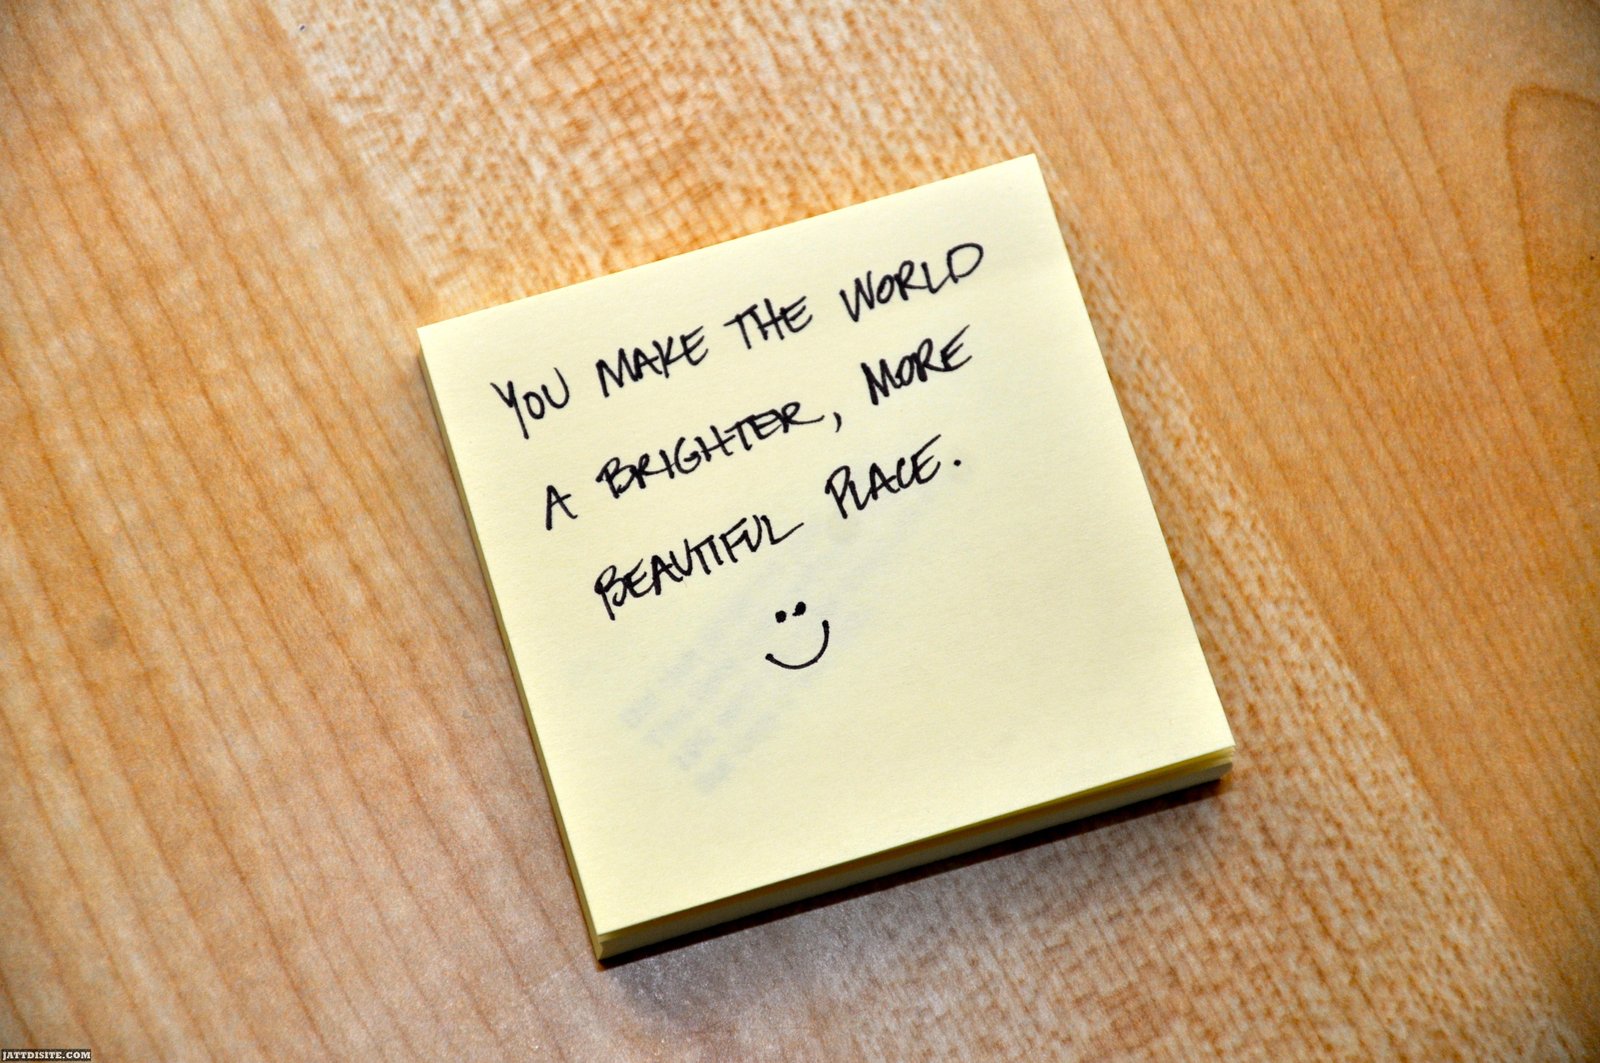 YOU MAKE THE WORLD
A BRIGHTER, MORE
BEAUTIFUL PLACE.
JATTDISITE.COM